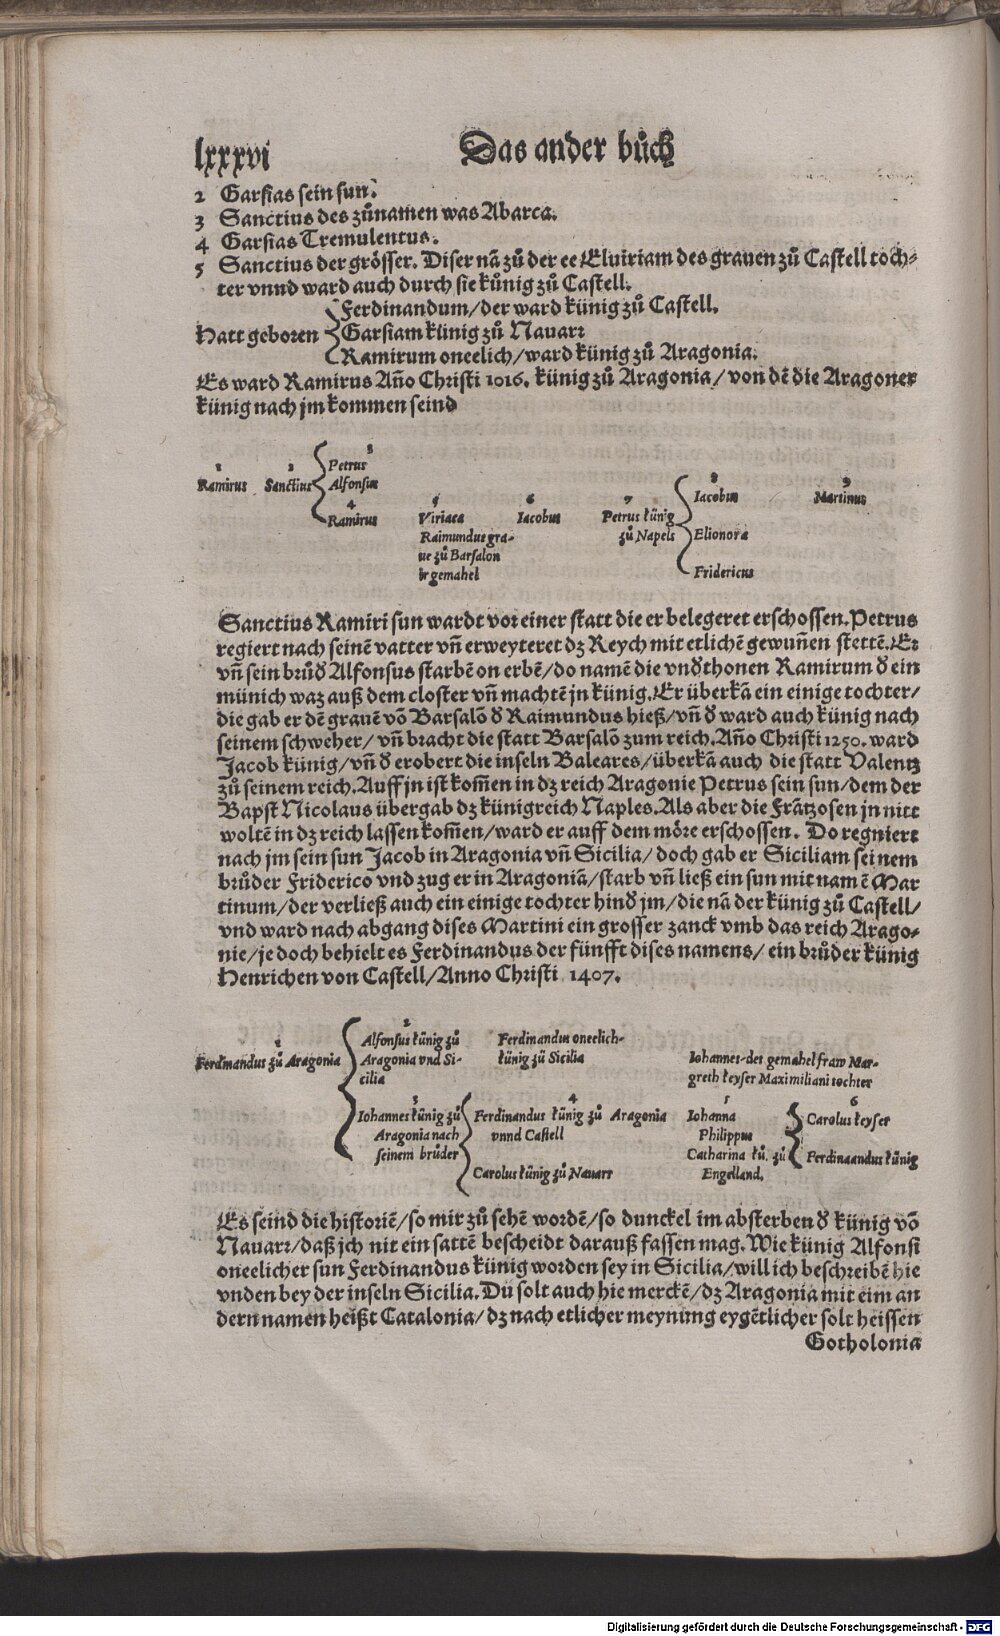 lxxxvi Das ander bůch
2 Garsias sein sun.
3 Sanctius des zůnamen was Abarca.
4 Garsias Tremulentus.
5 Sanctius der grösser. Diser nã zů der ee Eluiriam des grauen zů Castell toch-
ter vnnd ward auch durch sie künig zů Castell.
Ferdinandum/der ward künig zů Castell.
Hatt geboren Garsiam künig zů Nauarr
Ramirum oneelich/ward künig zů Aragonia.
Es ward Ramirus Año Christi 1016. künig zů Aragonia/von dẽ die Aragoner
künig nach jm kommen seind
1 Ramirus
2 Sanctius
3 Petrus
Alfonsus
4 Ramirus
5 Viriaca
Raimundus gra-
ue zů Barsalon
ir gemahel
6 Iacobus
7 Petrus künig
zů Napels
8 Iacobus
Elionora
Fridericus
9 Martinus
Sanctius Ramiri sun wardt vor einer statt die er belegeret erschossen. Petrus
regiert nach seinẽ vatter vñ erweyteret dz Reych mit etlichẽ gewuñen stettẽ. Er
vñ sein brůd Alfonsus starbẽ on erbẽ/do namẽ die vndthonen Ramirum d ein
münich waz auß dem closter vñ machtẽ jn künig. Er überkã ein einige tochter/
die gab er dẽ grauẽ võ Barsalõ d Raimundus hieß/vñ d ward auch künig nach
seinem schweher/vñ bracht die statt Barsalõ zum reich. Año Christi 1250. ward
Jacob künig/vñ d erobert die inseln Baleares/überkã auch die statt Valentz
zů seinem reich. Auff jn ist kom̃en in dz reich Aragonie Petrus sein sun/dem der
Bapst Nicolaus übergab dz künigreich Naples. Als aber die Frãtzosen jn nitt
woltẽ in dz reich lassen kom̃en/ward er auff dem möre erschossen. Do regniert
nach jm sein sun Jacob in Aragonia vñ Sicilia/doch gab er Siciliam seinem
brůder Friderico vnd zug er in Aragoniã/starb vñ ließ ein sun mit namẽ Mar
tinum/der verließ auch ein einige tochter hind jm/die nã der künig zů Castell/
vnd ward nach abgang dises Martini ein grosser zanck vmb das reich Arago-
nie/je doch behielt es Ferdinandus der fünfft dises namens/ein brůder künig
Henrichen von Castell/Anno Christi 1407.
1 Ferdinandus zů Aragonia
2 Alfonsus künig zů
Aragonia vnd Si-
cilia
Ferdinandus oneelich-
künig zů Sicilia
3 Iohannes künig zů
Aragonia nach
seinem brůder
4 Ferdinandus künig zů Aragonia
vnnd Castell
Carolus künig zů Nauarr
Iohannes des gemahel fraw Mar-
greth keyser Maximiliani tochter
5 Iohanna
Philippus
Catharina kü. zů
Engelland.
6 Carolus keyser
Ferdinaandus künig
Es seind die historiẽ/so mir zů sehẽ wordẽ/so dunckel im absterben d künig võ
Nauarr/daß jch nit ein sattẽ bescheidt darauß fassen mag. Wie künig Alfonsi
oneelicher sun Ferdinandus künig worden sey in Sicilia/will ich beschreibẽ hie
vnden bey der inseln Sicilia. Du solt auch hie merckẽ/dz Aragonia mit eim an
dern namen heißt Catalonia/dz nach etlicher meynung eygẽtlicher solt heissen
Gotholonia
Digitalisierung gefördert durch die Deutsche Forschungsgemeinschaft - DFG